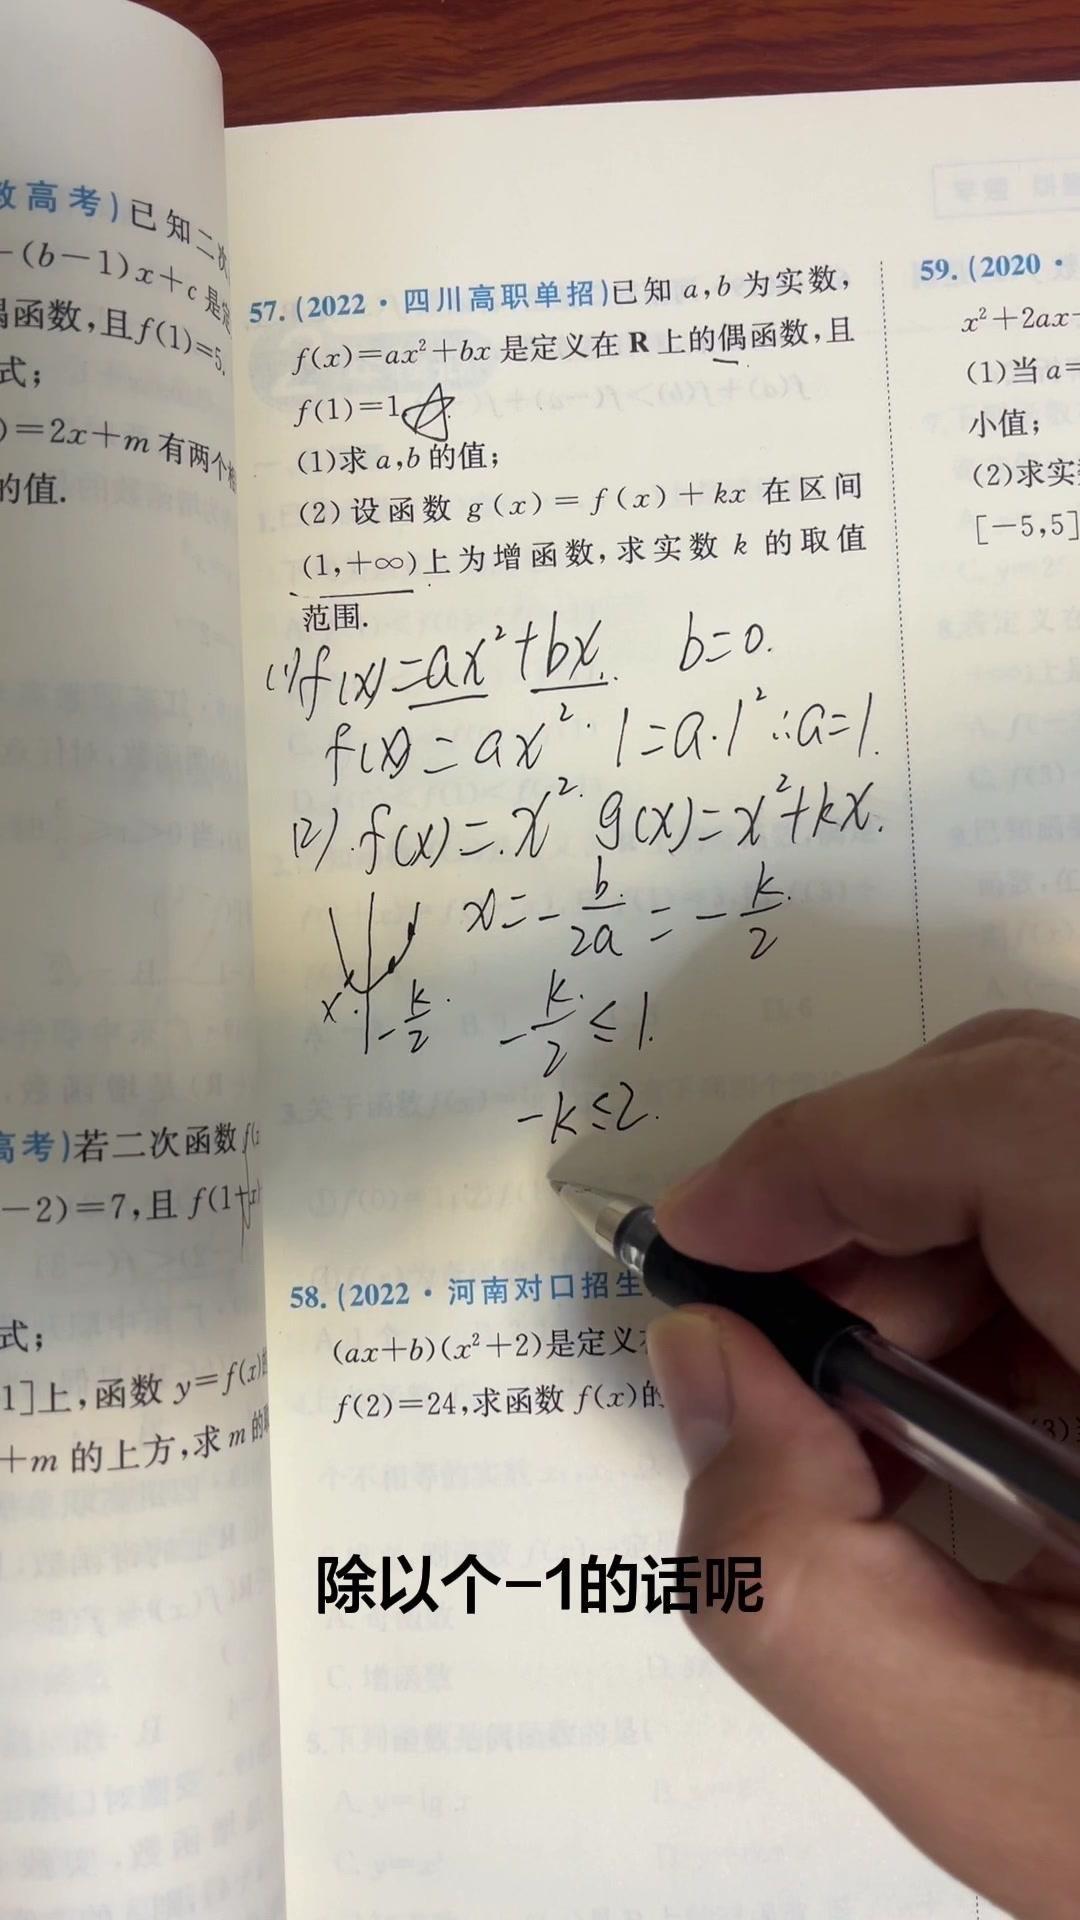 教高考)已知二次
-(b-1)x+c是定
偶函数,且f(1)=5.
式;
)=2x+m有两个相
的值.
高考)若二次函数f(x
-2)=7,且f(1+x)
式;
1]上,函数y=f(x)的
+m的上方,求m的取
57.(2022·四川高职单招)已知a,b为实数,
f(x)=ax²+bx是定义在R上的偶函数,且
f(1)=1.
(1)求a,b的值;
(2)设函数g(x)=f(x)+kx在区间
(1,+∞)上为增函数,求实数k的取值
范围.
(1)f(x)=ax²+bx. b=0.
f(x)=ax². 1=a·1² ∴a=1.
(2).f(x)=x². g(x)=x²+kx.
x=-b/2a=-k/2
x.-k/2 -k/2≤1.
-k≤2.
58.(2022·河南对口招生
(ax+b)(x²+2)是定义在
f(2)=24,求函数f(x)的
59.(2020·
x²+2ax-
(1)当a=
小值;
(2)求实
[-5,5]
除以个-1的话呢